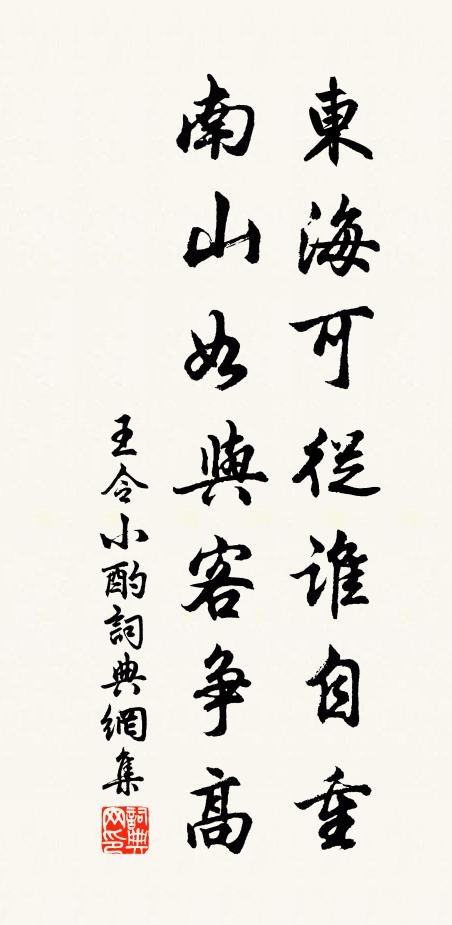 東海可從誰自重
南山如與客爭高
王令小酌詞典網集
詞典网印